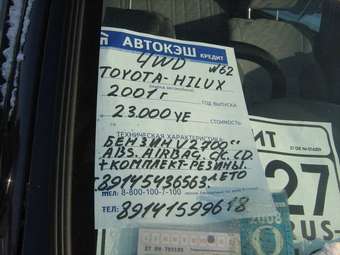 АВТОКЭШ
КРЕДИТ
4WD №62
TOYOTA-HILUX
2001 г ГОД ВЫПУСКА
23.000 УЕ СТОИМОСТЬ
ТЕХНИЧЕСКАЯ ХАРАКТЕРИСТИКА
БЕНЗИН V2700
ABS. AIRBAG. CK. CD.
+ КОМПЛЕКТ-РЕЗИНЫ
89145436563. ЛЕТО
ТЕЛ: 8-800-100-7-100
тел: 89141599618
ИТ
27
RUS